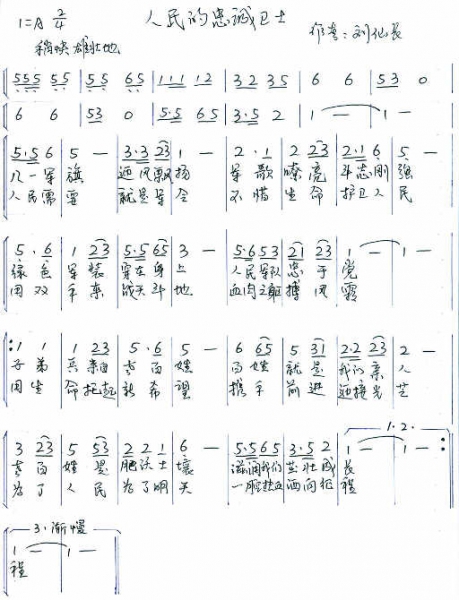 人民的忠诚卫士
1=A 2/4
稍快 雄壮地
作者:刘仁长
555 55 | 55 65 | 111 12 | 32 35 | 6 6 | 53 0
6 6 | 53 0 | 5·5 65 | 3·5 2 | 1 — | 1 —
5·5 6 | 5 — | 3·3 23 | 1 — | 2 · 1 | 2 23 | 2·1 6 | 5 —
八一军旗 迎风飘扬 军歌嘹亮 斗志刚强
人民需要 就是军令 不惜生命 护卫人民
5 · 6 | 1 23 | 5·5 65 | 3 — | 5·6 53 | 21 23 | 1 — | 1 —
绿色军装 穿在身上 人民军队忠于党
用双手来 战天斗地 血肉之躯搏风霜
1 1 | 1 23 | 5 · 6 | 5 — | 6 65 | 5 31 | 2·2 23 | 2 —
子弟兵来自老百姓 百姓就是我们亲人
用生命托起新希望 携手前进迎接光芒
3 23 | 5 53 | 2 2 1 | 6 — | 5·5 65 | 3·5 2 | 1 — | 1 — :
老百姓是肥沃土壤 滋润我们茁壮成长
为了人民为了明天 一腔热血洒向征程
1·2·
3·渐慢
1 — | 1 —
程